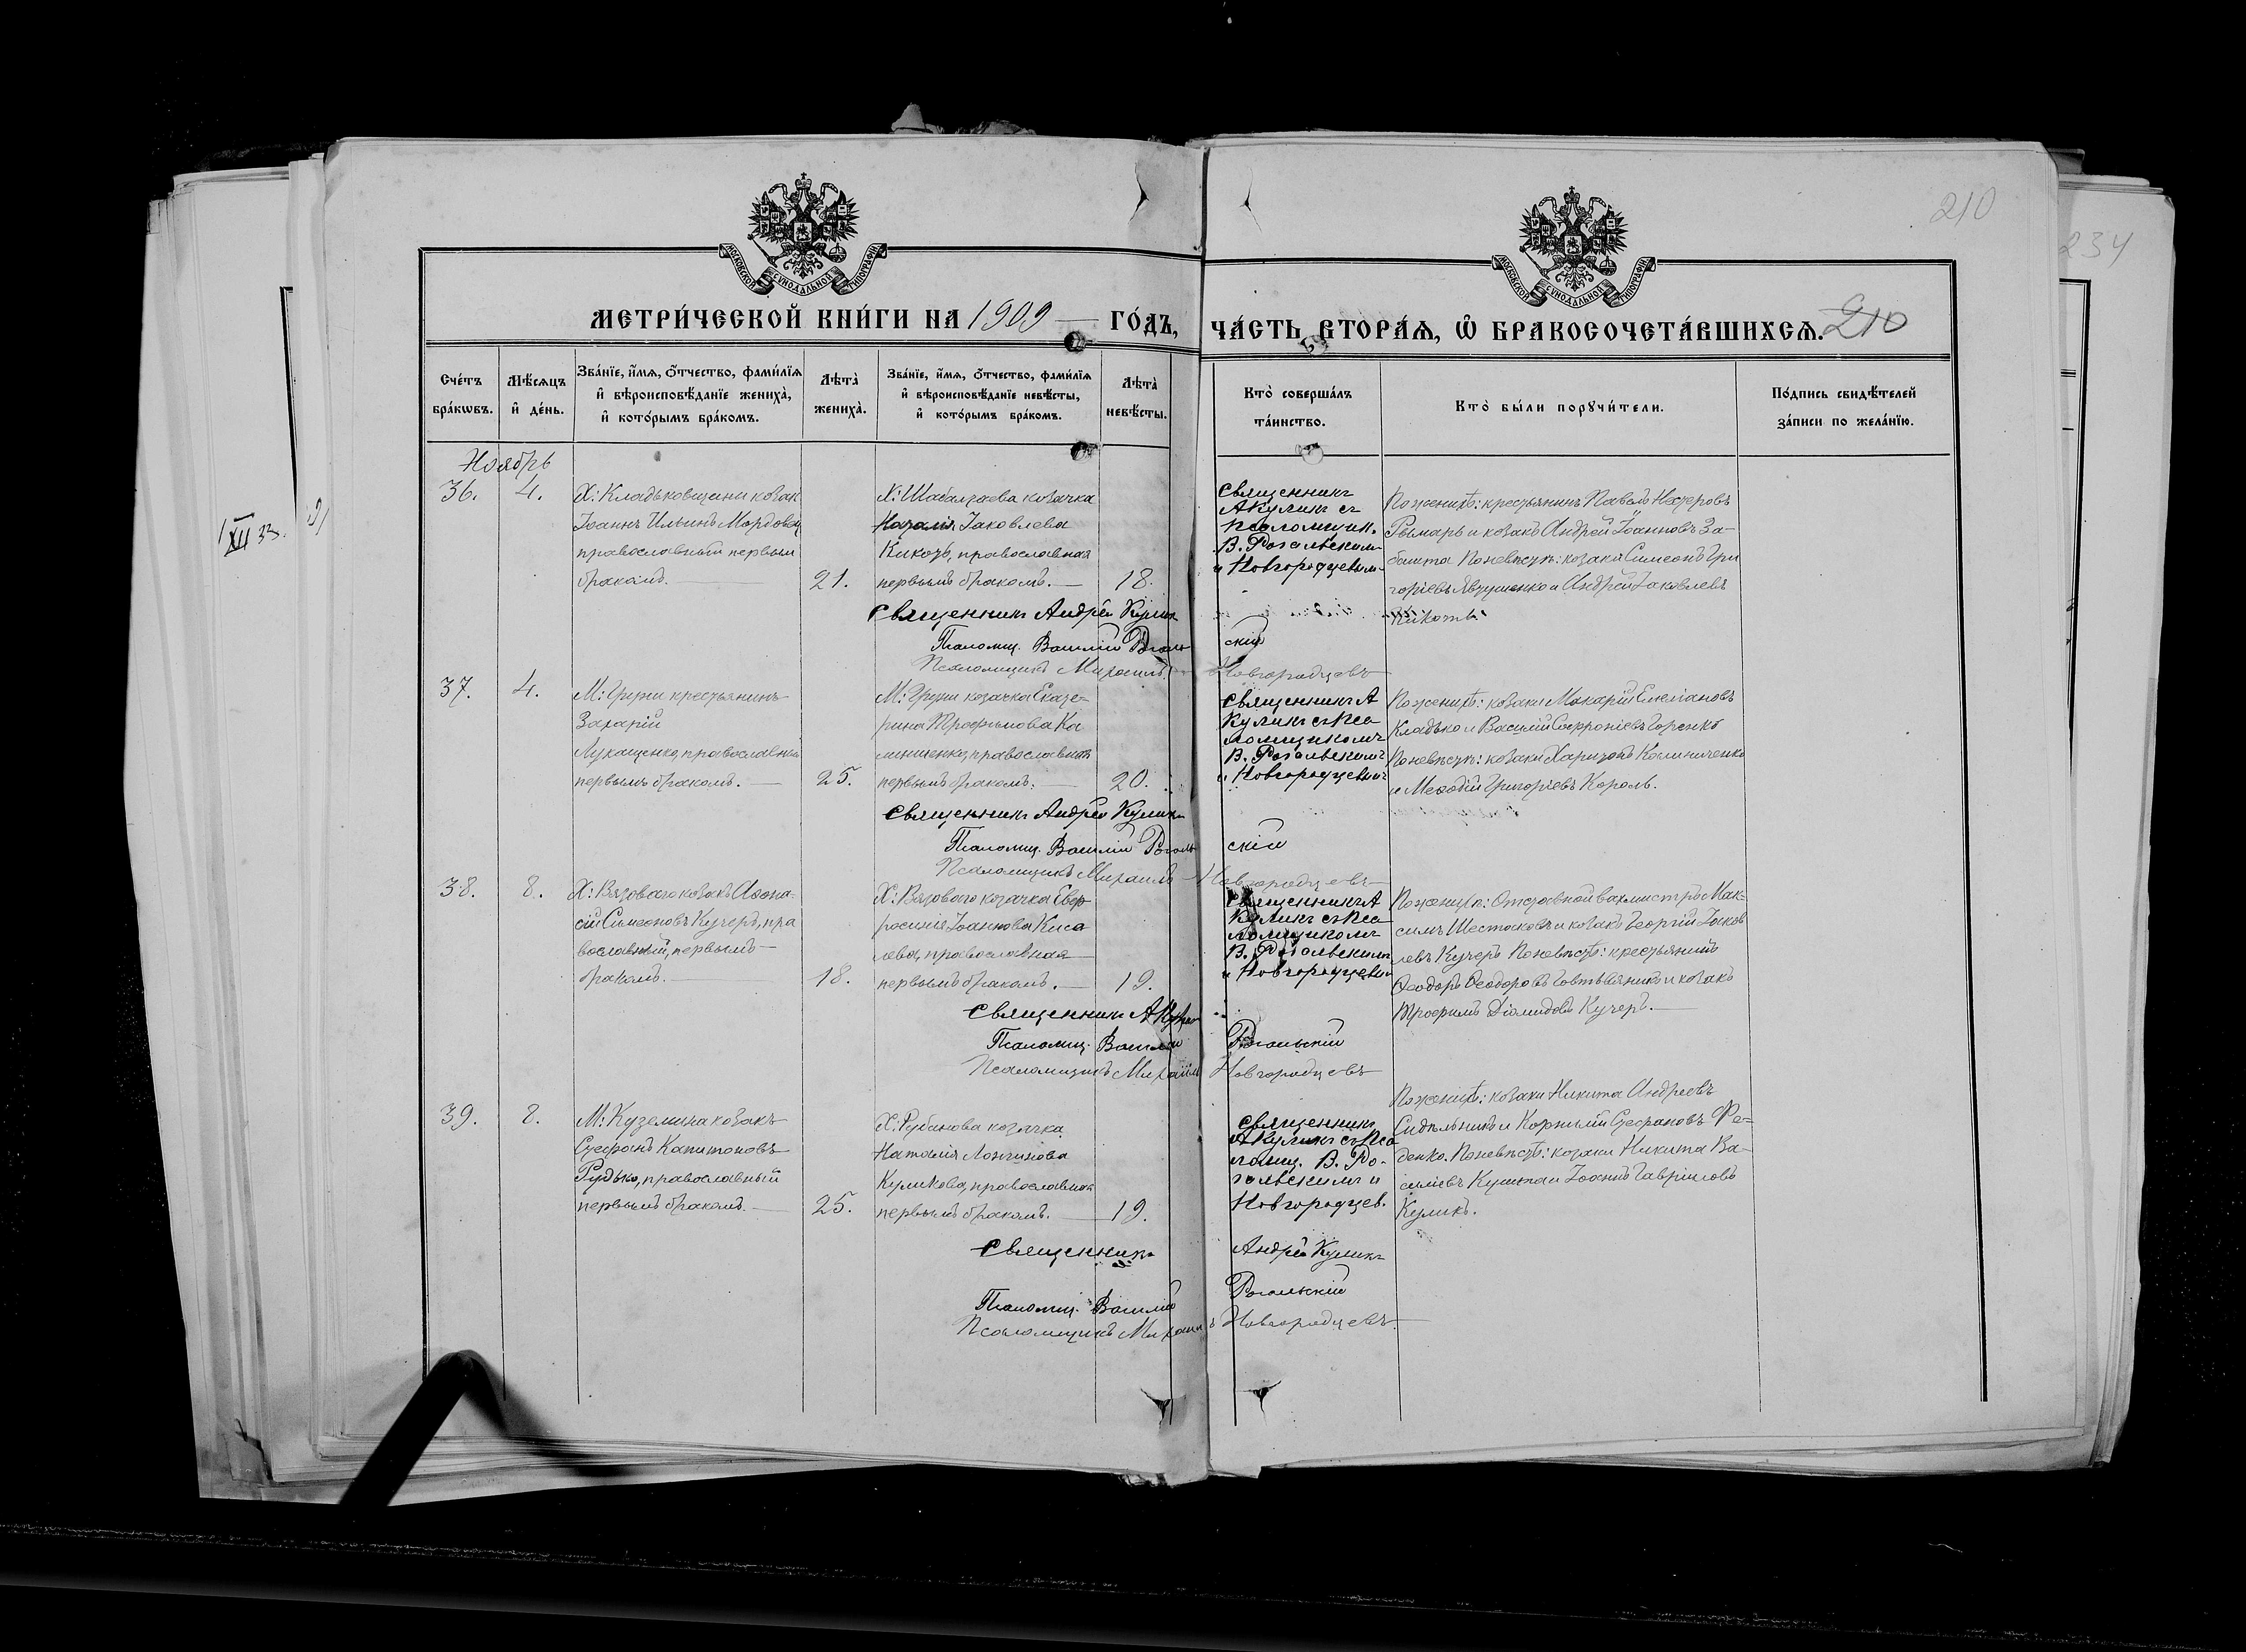 210
234
МОСКОВСКОЙ СУНОДАЛЬНОЙ ТИПОГРАФІИ
МОСКОВСКОЙ СУНОДАЛЬНОЙ ТИПОГРАФІИ
МЕТРИ́ЧЕСКОЙ КНИ́ГИ НА 1909 ГО́ДЪ,
ЧА́СТЬ ВТОРА́Я, Ѡ҆ БРАКОСОЧЕТА́ВШИХСЯ. 210
Сче́тъ бра́кѡвъ.
Мѣ́сяцъ и҆ де́нь.
Зва́нїе, и҆́мя, ѻ҆́тчество, фами́лїя
и҆ вѣроисповѣ́данїе жениха̀,
и҆ кото́рымъ бра́комъ.
Лѣта̀ жениха̀.
Зва́нїе, и҆́мя, ѻ҆́тчество, фами́лїя
и҆ вѣроисповѣ́данїе невѣ́сты,
и҆ кото́рымъ бра́комъ.
Лѣта̀ невѣ́сты.
Кто̀ соверша́лъ та́инство.
Кто̀ бы́ли порꙋчи́тели.
По́дпись свидѣ́телей за́писи по жела́нїю.
XII 33.
Ноябрь
36. 4.
Х: Кладьковщини козак
Іоаннъ Ильинъ Мордовец
православный первым
бракомъ. 21.
Х: Шабалтаева козачка
Наталія Іаковлева
Кикоть, православная
первымъ бракомъ. 18.
Священникъ
А Куликъ съ
псаломщик.
В. Рогальским
и Новгородцевым
По женихѣ: крестьянинъ Павелъ Несторовъ
Рымарь и козакъ Андрей Іоанновъ За-
башта По невѣстѣ: козаки Симеонъ Гри
горіевъ Явтушенко и Андрей Іаковлевъ
Кикоть
Священник Андрей Кулик
Псаломщ. Василій Рогальскій
Псаломщикъ Михаилъ Новгородцевъ
37. 4.
М: Груни крестьянинъ
Захарій
Лукащенко, православный
первымъ бракомъ. 25.
М: Груни козачка Екате-
рина Трофимова Ка
линиченко, православная
первымъ бракомъ. 20.
Священникъ А
Куликъ съ пса
ломщикомъ
В. Рогальскимъ
и Новгородцевым
По женихѣ: козаки Макарій Емеліановъ
Кладько и Василій Софроніевъ Горенко
По невѣстѣ: козаки Харитонъ Калиниченко
и Меѳодій Григоріевъ Король.
Священник Андрей Кулик
Псаломщ. Василій Рогальскій
Псаломщикъ Михаилъ Новгородцевъ
38. 8.
Х: Вязоваго козакъ Аѳана-
сій Симеоновъ Кучеръ, пра
вославный, первымъ
бракомъ. 18.
Х: Вязоваго козачка Евф-
росинія Іоаннова Кисе
лева, православная
первымъ бракомъ. 19.
Священникъ А
Куликъ съ пса
ломщикомъ
В. Рогальскимъ
и Новгородцевым
По женихѣ: Отставной вахмистръ Мак-
симъ Шестаковъ и козакъ Георгій Іаков
левъ Кучеръ По невѣстѣ: крестьянинъ
Ѳеодоръ Ѳеодоровъ Говтвяникъ и козакъ
Трофимъ Діомидовъ Кучеръ.
Священник А Кулик
Псаломщ. Василій Рогальскій
Псаломщикъ Михаилъ Новгородцевъ
39. 8.
М: Куземина козакъ
Стефанъ Капитоновъ
Рудько, православный
первымъ бракомъ. 25.
Х: Рубанова козачка
Наталія Логинова
Куликова, православная
первымъ бракомъ. 19.
Священник
А Куликъ съ пса
ломщ. В. Ро-
гальскимъ и
Новгородцев.
По женихѣ: козаки Никита Андреевъ
Сидѣльникъ и Корнилій Стефановъ Ре-
денко. По невѣстѣ: козаки Никита Ва-
силіевъ Кулик и Іоаннъ Гавріиловъ
Куликъ.
Священник Андрей Кулик
Псаломщ. Василій Рогальскій
Псаломщикъ Михаилъ Новгородцевъ